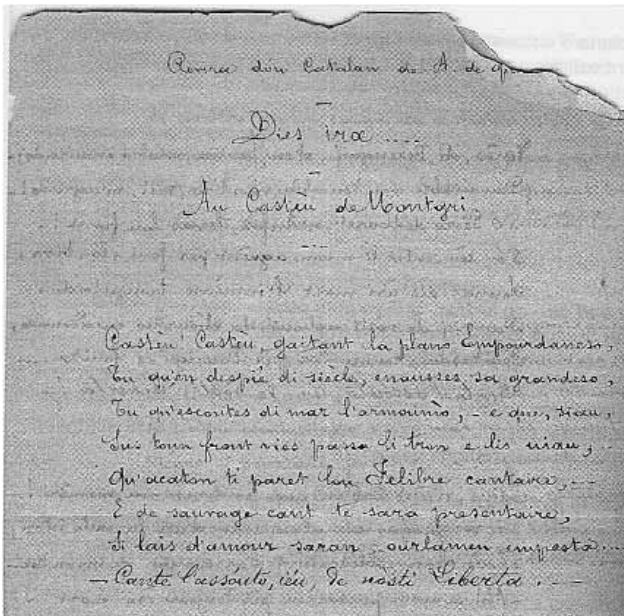 Revira dóu Catalan de A. de
Dies iræ ....
Au Castèu de Montgri
Castèu! Castèu, gaitant la plano Empourdaneso,
Tu qu'en despié di siècle, enausses sa grandeso,
Tu qu'escoutes di mar l'armounìo, - e que, siau,
Sus toun front vies passa li tron e lis uiau, -
Qu'acaton ti paret lou Felibre cantaire, -
E de sauvage cant te sara presentaire,
Si lais d'amour saran ourlamen empesta...
- Cante l'assauto, iéu, de nòsti Liberta. -